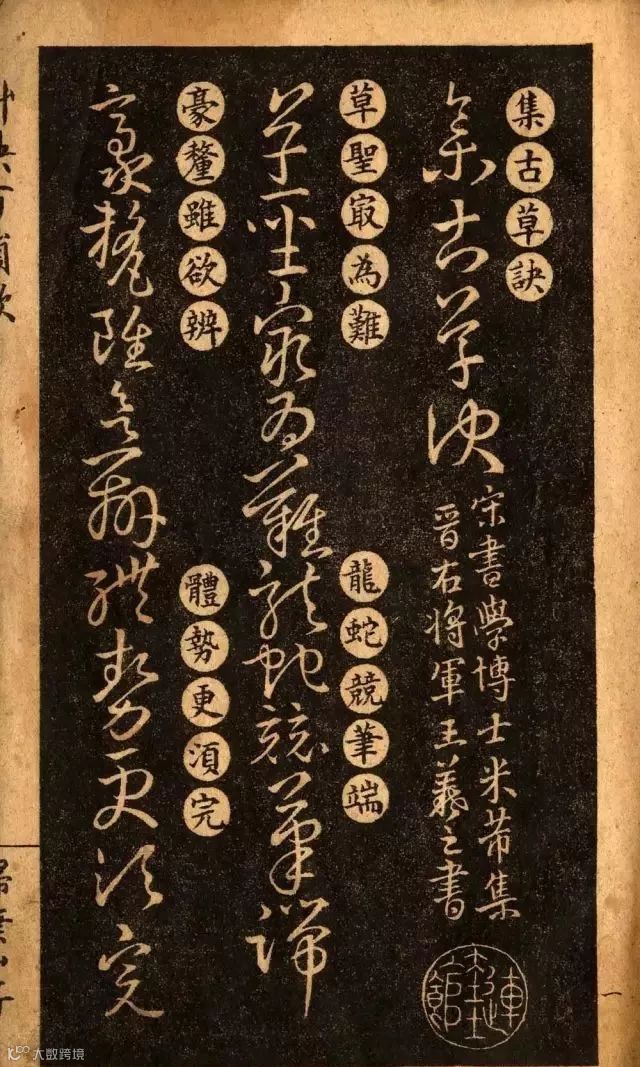 集古草訣
集古草訣
宋書學博士米芾集
晉右將軍王羲之書
草聖㝡為難
龍蛇競筆端
草聖㝡為難龍蛇競筆端
豪釐雖欲辨
體勢更須完
豪釐雖欲辨體勢更須完
一
大数跨境